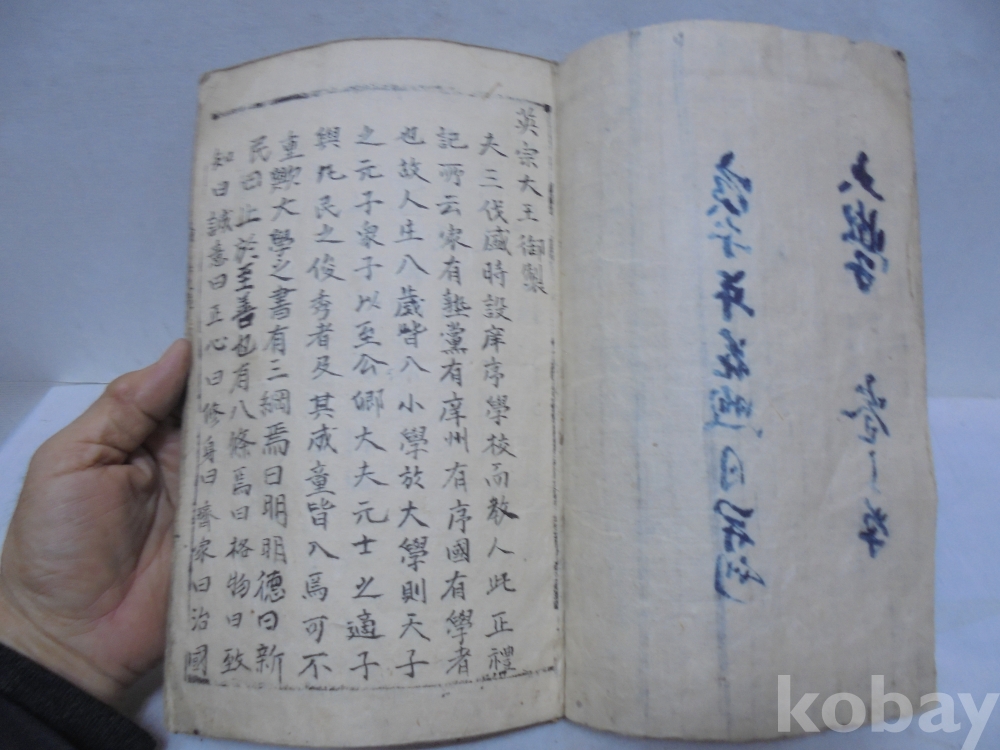 英宗大王御製
夫三代盛時設庠序學校而教人此正禮
記所云家有塾黨有庠州有序國有學者
也故人生八歲皆入小學於大學則天子
之元子衆子以至公卿大夫元士之適子
與凡民之俊秀者及其成童皆入焉可不
重歟大學之書有三綱焉曰明明德曰新
民曰止於至善也有八條焉曰格物曰致
知曰誠意曰正心曰修身曰齊家曰治國
kobay